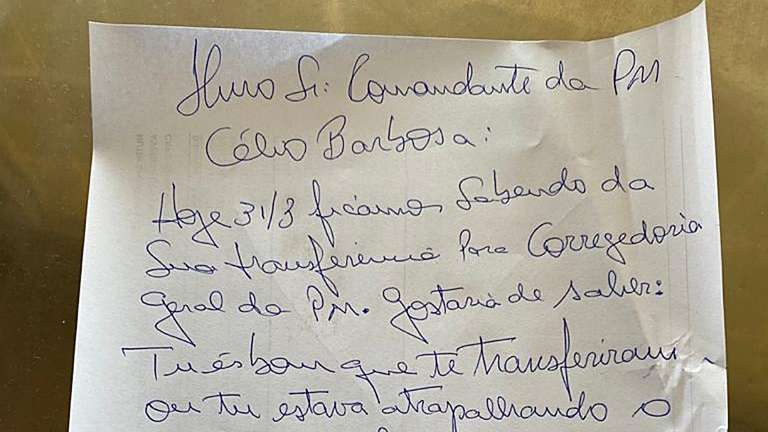 Ilmo Sr: Comandante da PM
Célio Barbosa:
Hoje 31/3 ficamos sabendo da
Sua transferência para Corregedoria
Geral da PM. Gostaria de saber:
Tu és bom que te transferiram
ou tu estava atrapalhando o